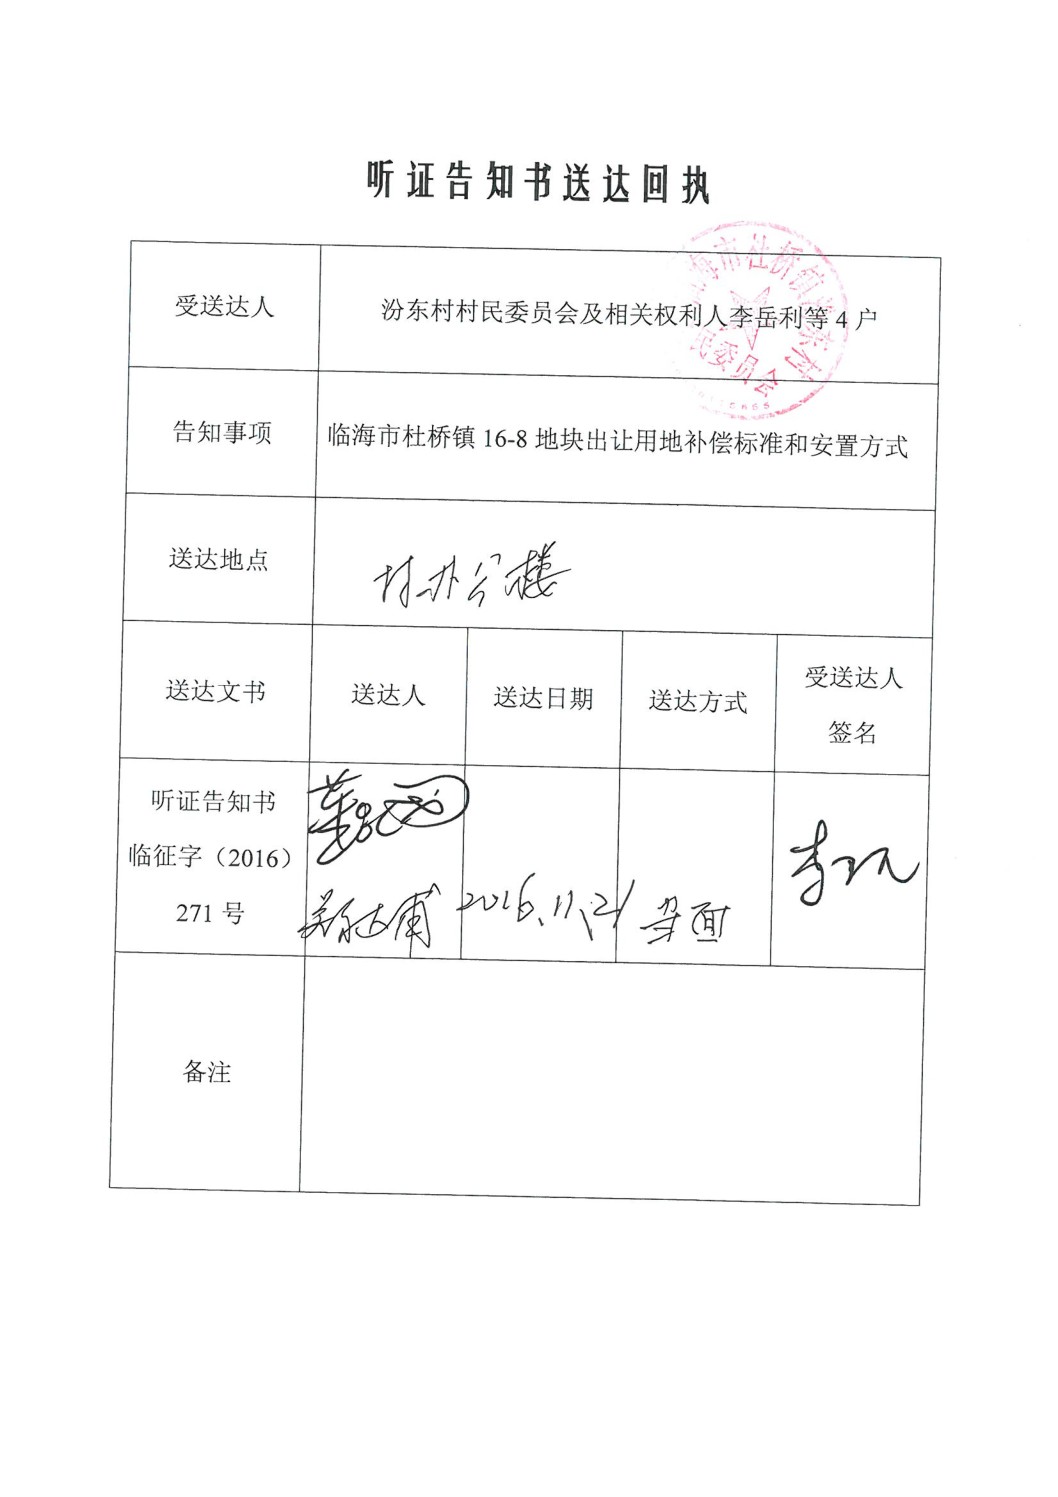 听证告知书送达回执
受送达人
汾东村村民委员会及相关权利人李岳利等4户
告知事项
临海市杜桥镇16-8地块出让用地补偿标准和安置方式
送达地点
村办公楼
送达文书
送达人
送达日期
送达方式
受送达人
签名
听证告知书
临征字（2016）
271号
2016.11.21
书面
备注
海市杜桥镇汾东村
民委员会